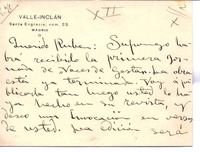 VALLE-INCLÁN
Santa Engracia, núm. 23.
MADRID
XII
Querido Rubén: Supongo ha-
brá recibido la primera jor-
nada de Voces de Gesta. La obra
está ya terminada. Voy á pu-
blicarla tan luego usted lo ha-
ya hecho en su revista, y
deseo una Invocación en versos
de usted. La edición será